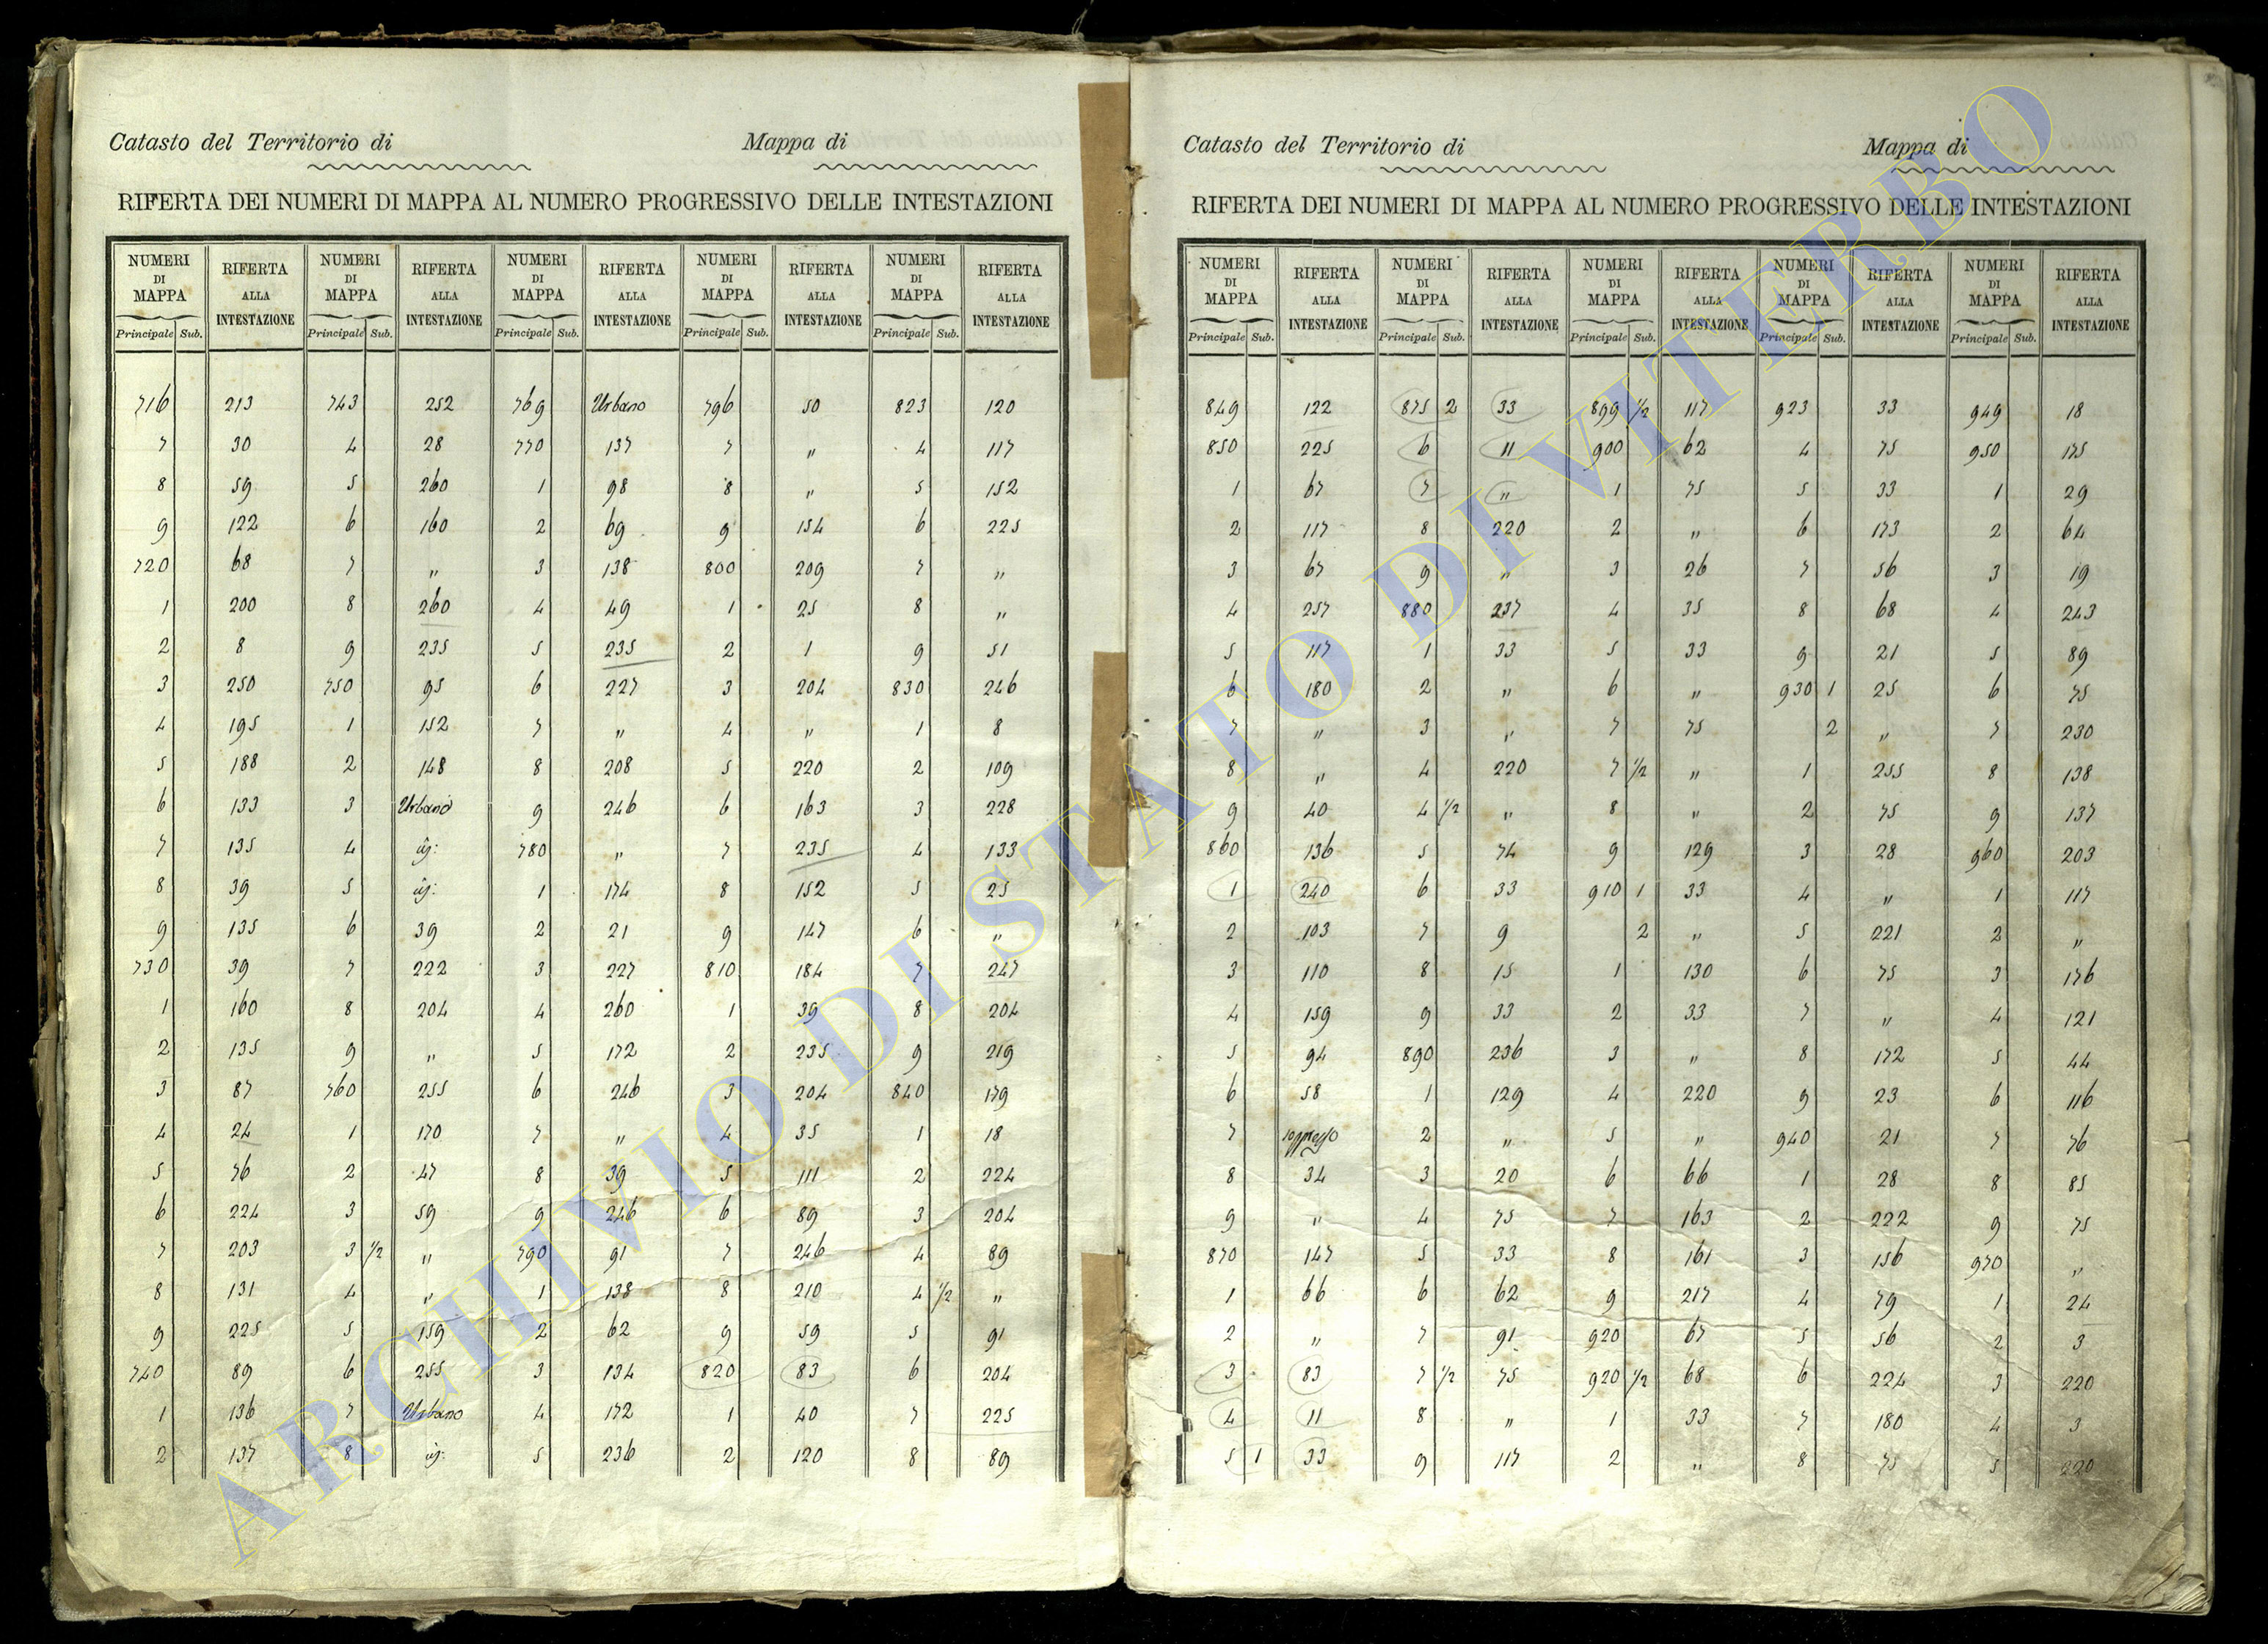 Catasto del Territorio di Mappa di
RIFERTA DEI NUMERI DI MAPPA AL NUMERO PROGRESSIVO DELLE INTESTAZIONI
NUMERI DI MAPPA RIFERTA ALLA INTESTAZIONE NUMERI DI MAPPA RIFERTA ALLA INTESTAZIONE NUMERI DI MAPPA RIFERTA ALLA INTESTAZIONE NUMERI DI MAPPA RIFERTA ALLA INTESTAZIONE NUMERI DI MAPPA RIFERTA ALLA INTESTAZIONE
Principale Sub. Principale Sub. Principale Sub. Principale Sub. Principale Sub.
716 213 743 252 769 Urbano 796 50 823 120
7 30 4 28 770 137 7 " 4 117
8 59 5 260 1 98 8 " 5 152
9 122 6 160 2 69 9 154 6 225
720 68 7 " 3 138 800 209 7 "
1 200 8 260 4 49 1 25 8 "
2 8 9 235 5 235 2 1 9 51
3 250 750 95 6 227 3 204 830 246
4 195 1 152 7 " 4 " 1 8
5 188 2 148 8 208 5 220 2 109
6 133 3 Urbano 9 246 6 163 3 228
7 135 4 id: 780 " 7 235 4 133
8 39 5 id: 1 174 8 152 5 25
9 135 6 39 2 21 9 147 6 "
730 39 7 222 3 227 810 184 7 247
1 160 8 204 4 260 1 39 8 204
2 135 9 " 5 172 2 235 9 219
3 87 760 255 6 246 3 204 840 179
4 24 1 170 7 " 4 35 1 18
5 76 2 47 8 39 5 111 2 224
6 224 3 59 9 246 6 89 3 204
7 203 3 1/2 " 790 91 7 246 4 89
8 131 4 " 1 138 8 210 4 1/2 "
9 225 5 159 2 62 9 59 5 91
740 89 6 255 3 134 820 83 6 204
1 136 7 Urbano 4 172 1 40 7 225
2 137 8 id: 5 236 2 120 8 89
Catasto del Territorio di Mappa di
RIFERTA DEI NUMERI DI MAPPA AL NUMERO PROGRESSIVO DELLE INTESTAZIONI
NUMERI DI MAPPA RIFERTA ALLA INTESTAZIONE NUMERI DI MAPPA RIFERTA ALLA INTESTAZIONE NUMERI DI MAPPA RIFERTA ALLA INTESTAZIONE NUMERI DI MAPPA RIFERTA ALLA INTESTAZIONE NUMERI DI MAPPA RIFERTA ALLA INTESTAZIONE
Principale Sub. Principale Sub. Principale Sub. Principale Sub. Principale Sub.
849 122 875 2 33 899 1/2 117 923 33 949 18
850 225 6 11 900 62 4 75 950 175
1 67 7 " 1 75 5 33 1 29
2 117 8 220 2 " 6 173 2 64
3 67 9 " 3 26 7 56 3 19
4 257 880 237 4 35 8 68 4 243
5 117 1 33 5 33 9 21 5 89
6 180 2 " 6 " 930 1 25 6 75
7 " 3 " 7 75 2 " 7 230
8 " 4 220 7 1/2 " 1 255 8 138
9 40 4 1/2 " 8 " 2 75 9 137
860 136 5 74 9 129 3 28 960 203
1 240 6 33 910 1 33 4 " 1 117
2 103 7 9 2 " 5 221 2 "
3 110 8 15 1 130 6 75 3 176
4 159 9 33 2 33 7 " 4 121
5 94 890 236 3 " 8 172 5 44
6 58 1 129 4 220 9 23 6 116
7 soppresso 2 " 5 " 940 21 7 76
8 34 3 20 6 66 1 28 8 85
9 " 4 75 7 163 2 222 9 75
870 147 5 33 8 161 3 156 970 "
1 66 6 62 9 217 4 79 1 24
2 " 7 91 920 67 5 56 2 3
3 83 7 1/2 75 920 1/2 68 6 224 3 220
4 11 8 " 1 33 7 180 4 3
5 1 33 9 117 2 " 8 75 5 220
ARCHIVIO DI STATO DI VITERBO